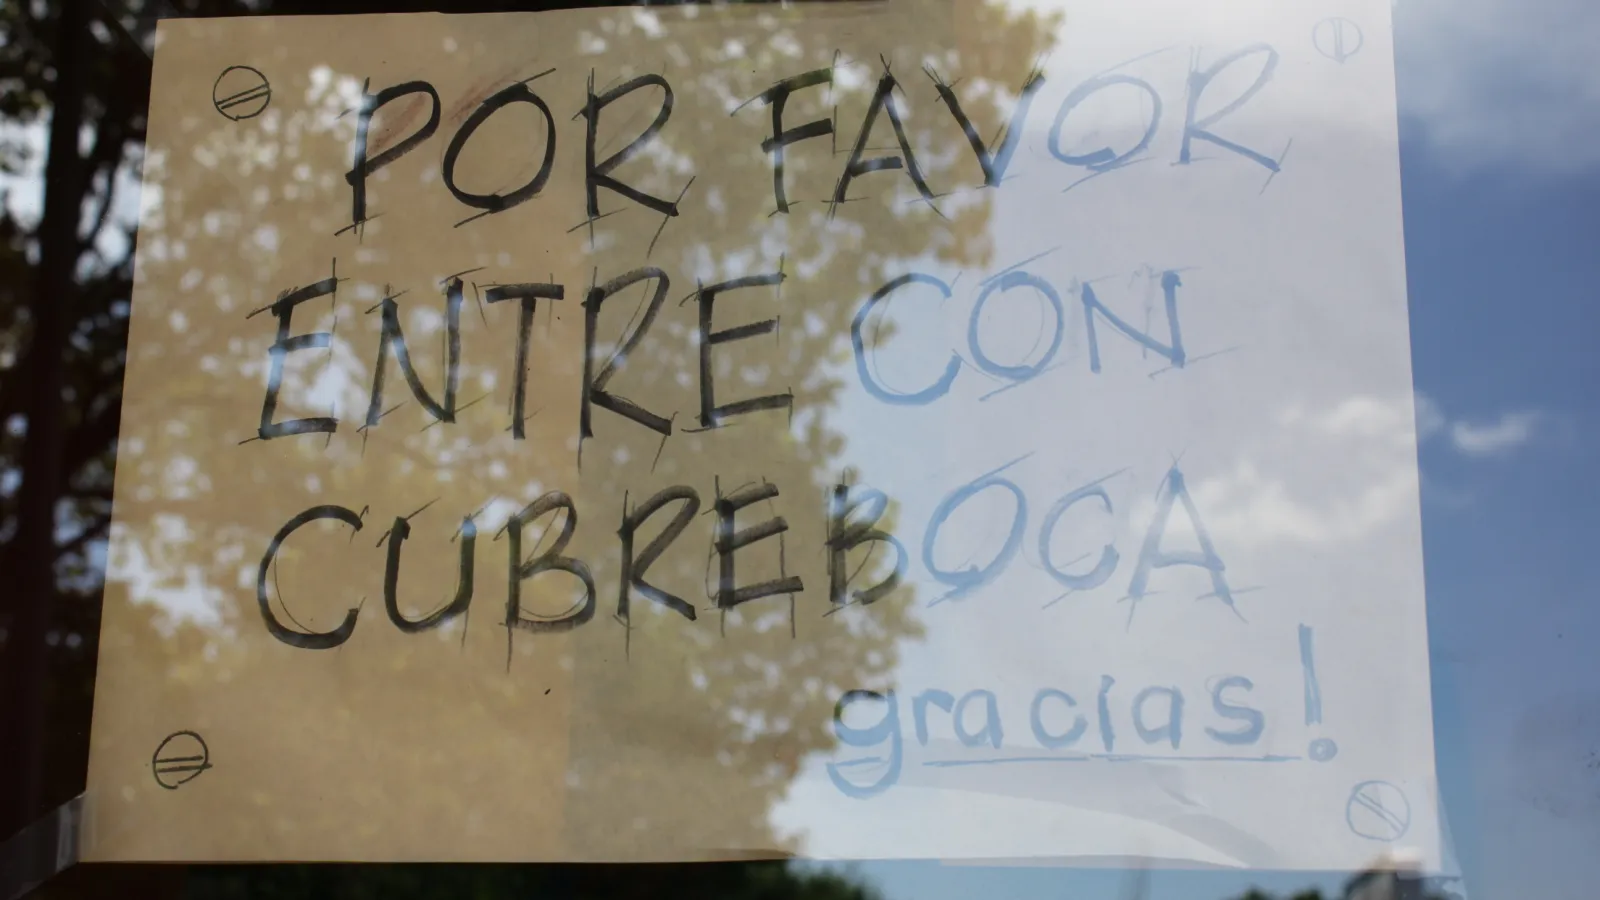 POR FAVOR
ENTRE CON
CUBREBOCA
gracias!